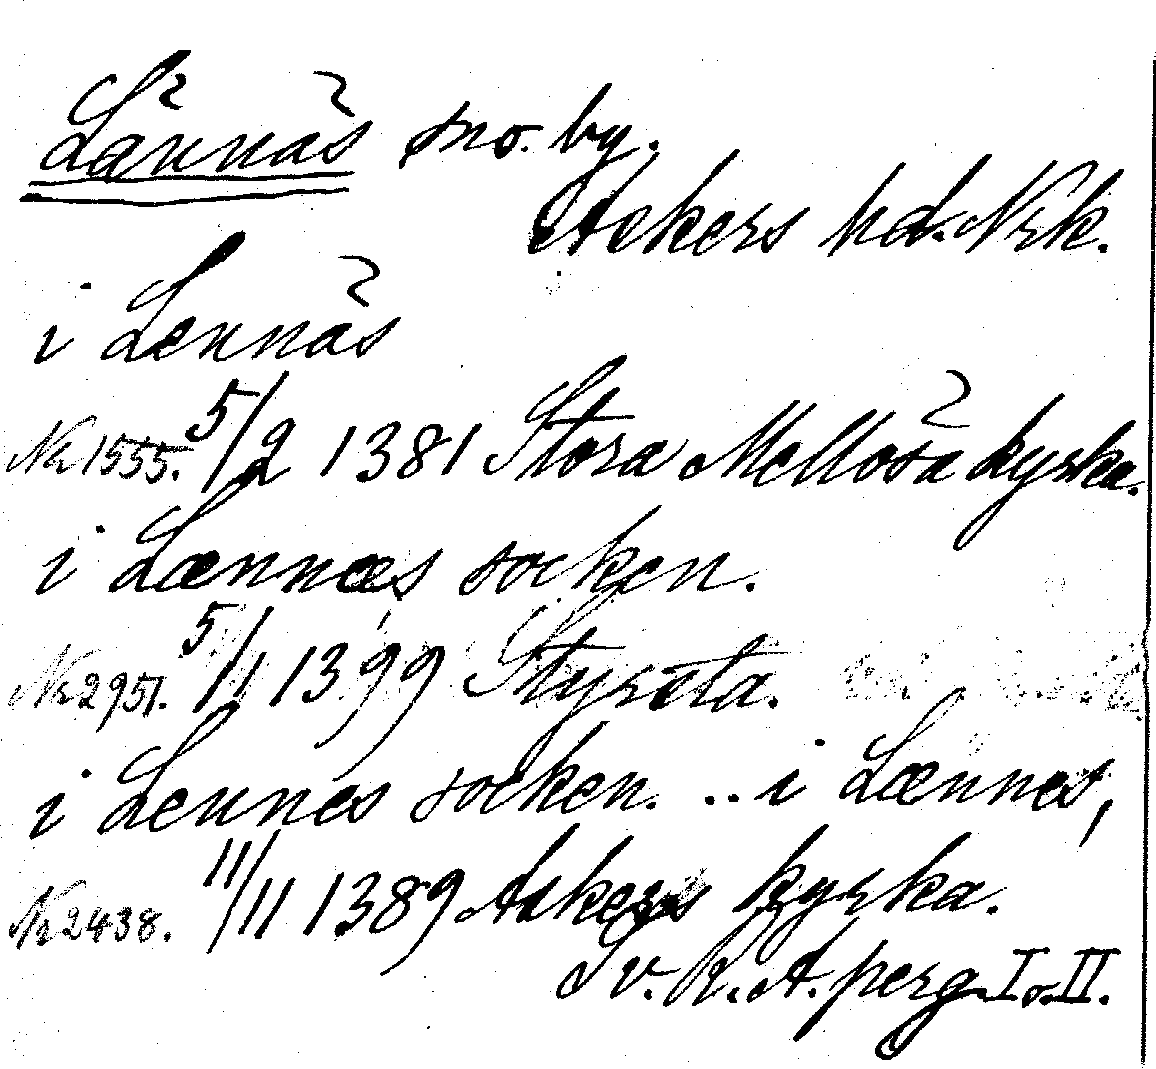 Lännäs sno. by.
Askers hd. Nrk.
i Lennäs
Nr 1555. 5/2 1381 Stora Mellösa kyrka.
i Lænnæs socken.
Nr 2951. 5/11 1399 Styrsta.
i Lennes socken. .. i Lænnes,
Nr 2438. 11/11 1389 Askers kyrka.
Sv. R. A. perg. I o. II.